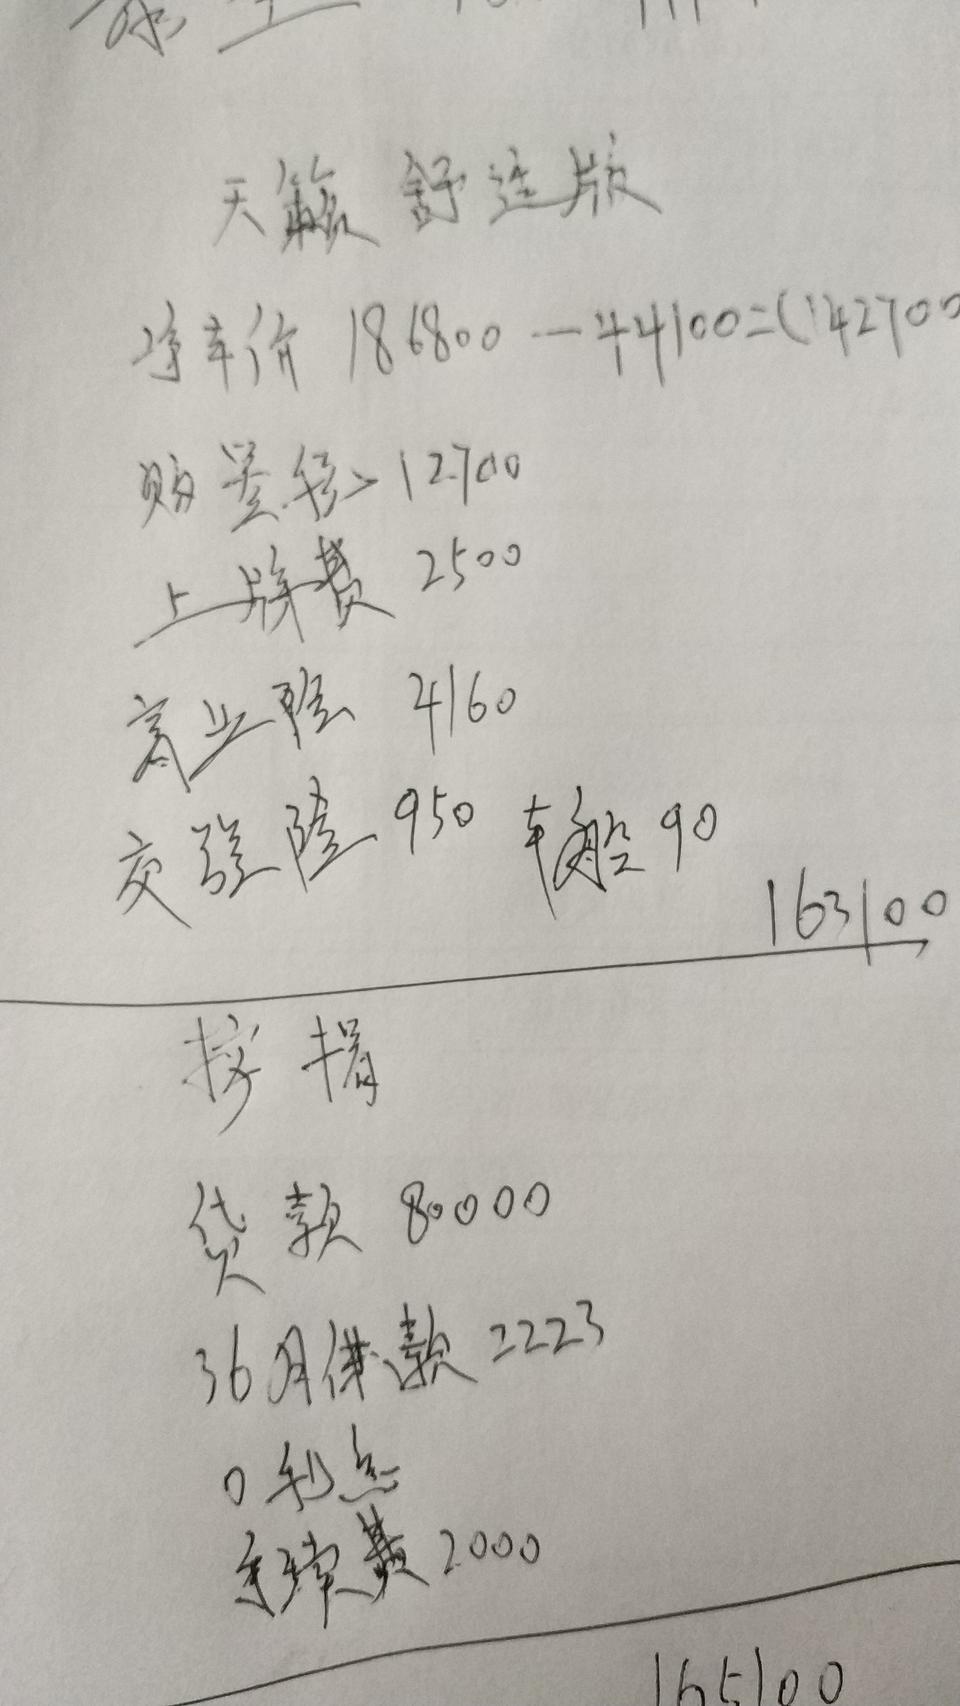 天籁 舒适版
净车价 186800-44100=(142700
购置税 12700
上牌费 2500
商业险 4160
交强险 950 车船 90
163100
按揭
贷款 80000
36月供款 2223
0利息
手续费 2000
165100